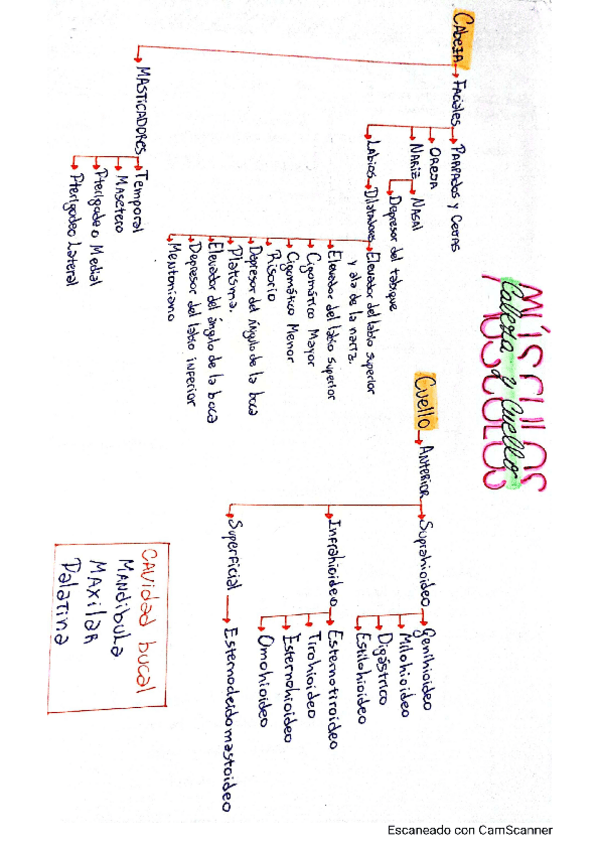 MÚSCULOS
Cabeza y Cuello
CABEZA
Faciales
PARPADOS y CEJAS
OREJA
NARIZ
NASAL
Depresor del tabique
Labios
Dilatadores
Elevador del labio superior
y ala de la nariz.
Elevador del labio superior
Cigomático Mayor
Cigomático Menor
Risorio
Depresor del ángulo de la boca
Platisma.
Elevador del ángulo de la boca
Depresor del labio inferior
Mentoniano
MASTICADORES
Temporal
Masetero
Pterigodeo Medial
Pterigodeo Lateral
Cuello
Anterior
Suprahioideo
Genihioideo
Milohioideo
Digástrico
Estilohioideo
Infrahioideo
Esternotiroideo
Tirohioideo
Esternohioideo
Omohioideo
Superficial
Esternocleidomastoideo
CAVIDAD bucal
MANDIBULA
MAXILAR
Palatina
Escaneado con CamScanner